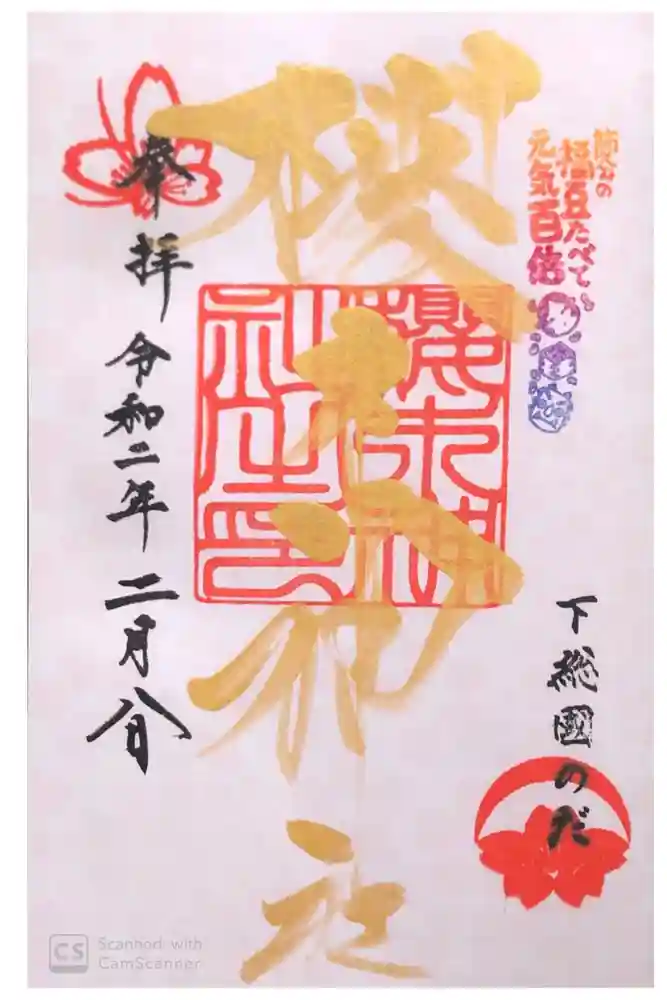 節分の
福豆たべて
元気百倍
下総國のだ
櫻木神社
奉拝
令和二年 二月八日
CS Scanned with
CamScanner